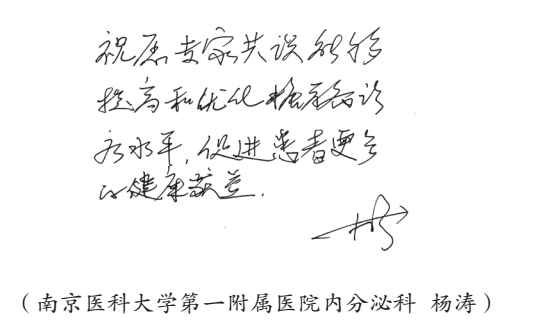 祝愿专家共识能够
提高和优化糖尿病诊
疗水平，促进患者更多
的健康获益.
（南京医科大学第一附属医院内分泌科 杨涛）